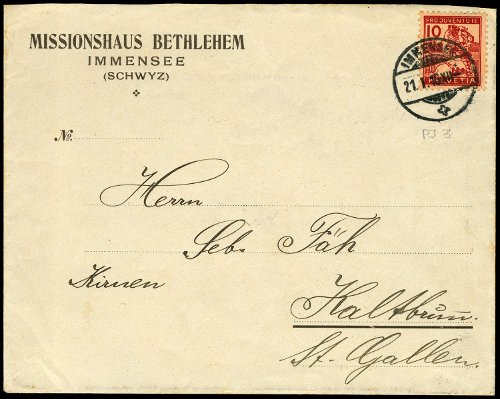 MISSIONSHAUS BETHLEHEM
IMMENSEE
(SCHWYZ)
PRO JUVENTUTE
10
HELVETIA
IMMENSEE
21.I.
PJ 3
No.
Herrn
Seb. Fäh
Kirnen
Kaltbrunn.
St. Gallen.